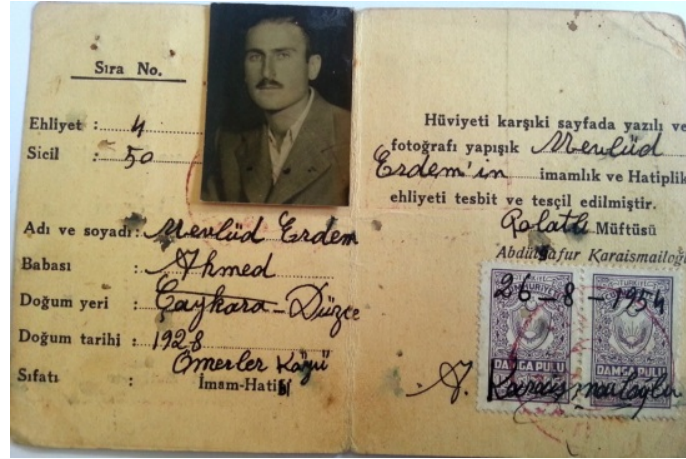 Sıra No.
Ehliyet : 4
Sicil : 50
Adı ve soyadı: Mevlüd Erdem
Babası : Ahmed
Doğum yeri : Çaykara - Düzce
Doğum tarihi : 1928
Ömerler Köyü
Sıfatı : İmam-Hatibi
Hüviyeti karşıki sayfada yazılı ve
fotoğrafı yapışık Mevlüd
Erdem'in imamlık ve Hatiplik
ehliyeti tesbit ve tesçil edilmiştir.
Polatlı Müftüsü
Abdülgafur Karaismailoğl
26-8-1954
DAMGA PULU DAMGA PULU
A. Karaismailoğlu